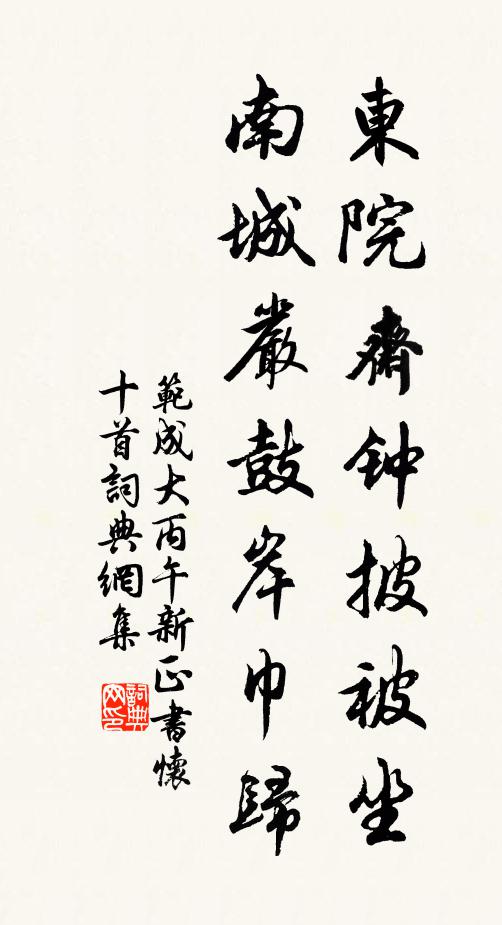 東院齋钟披被坐
南城嚴鼓岸巾歸
範成大丙午新正書懷
十首詞典網集
詞典网印